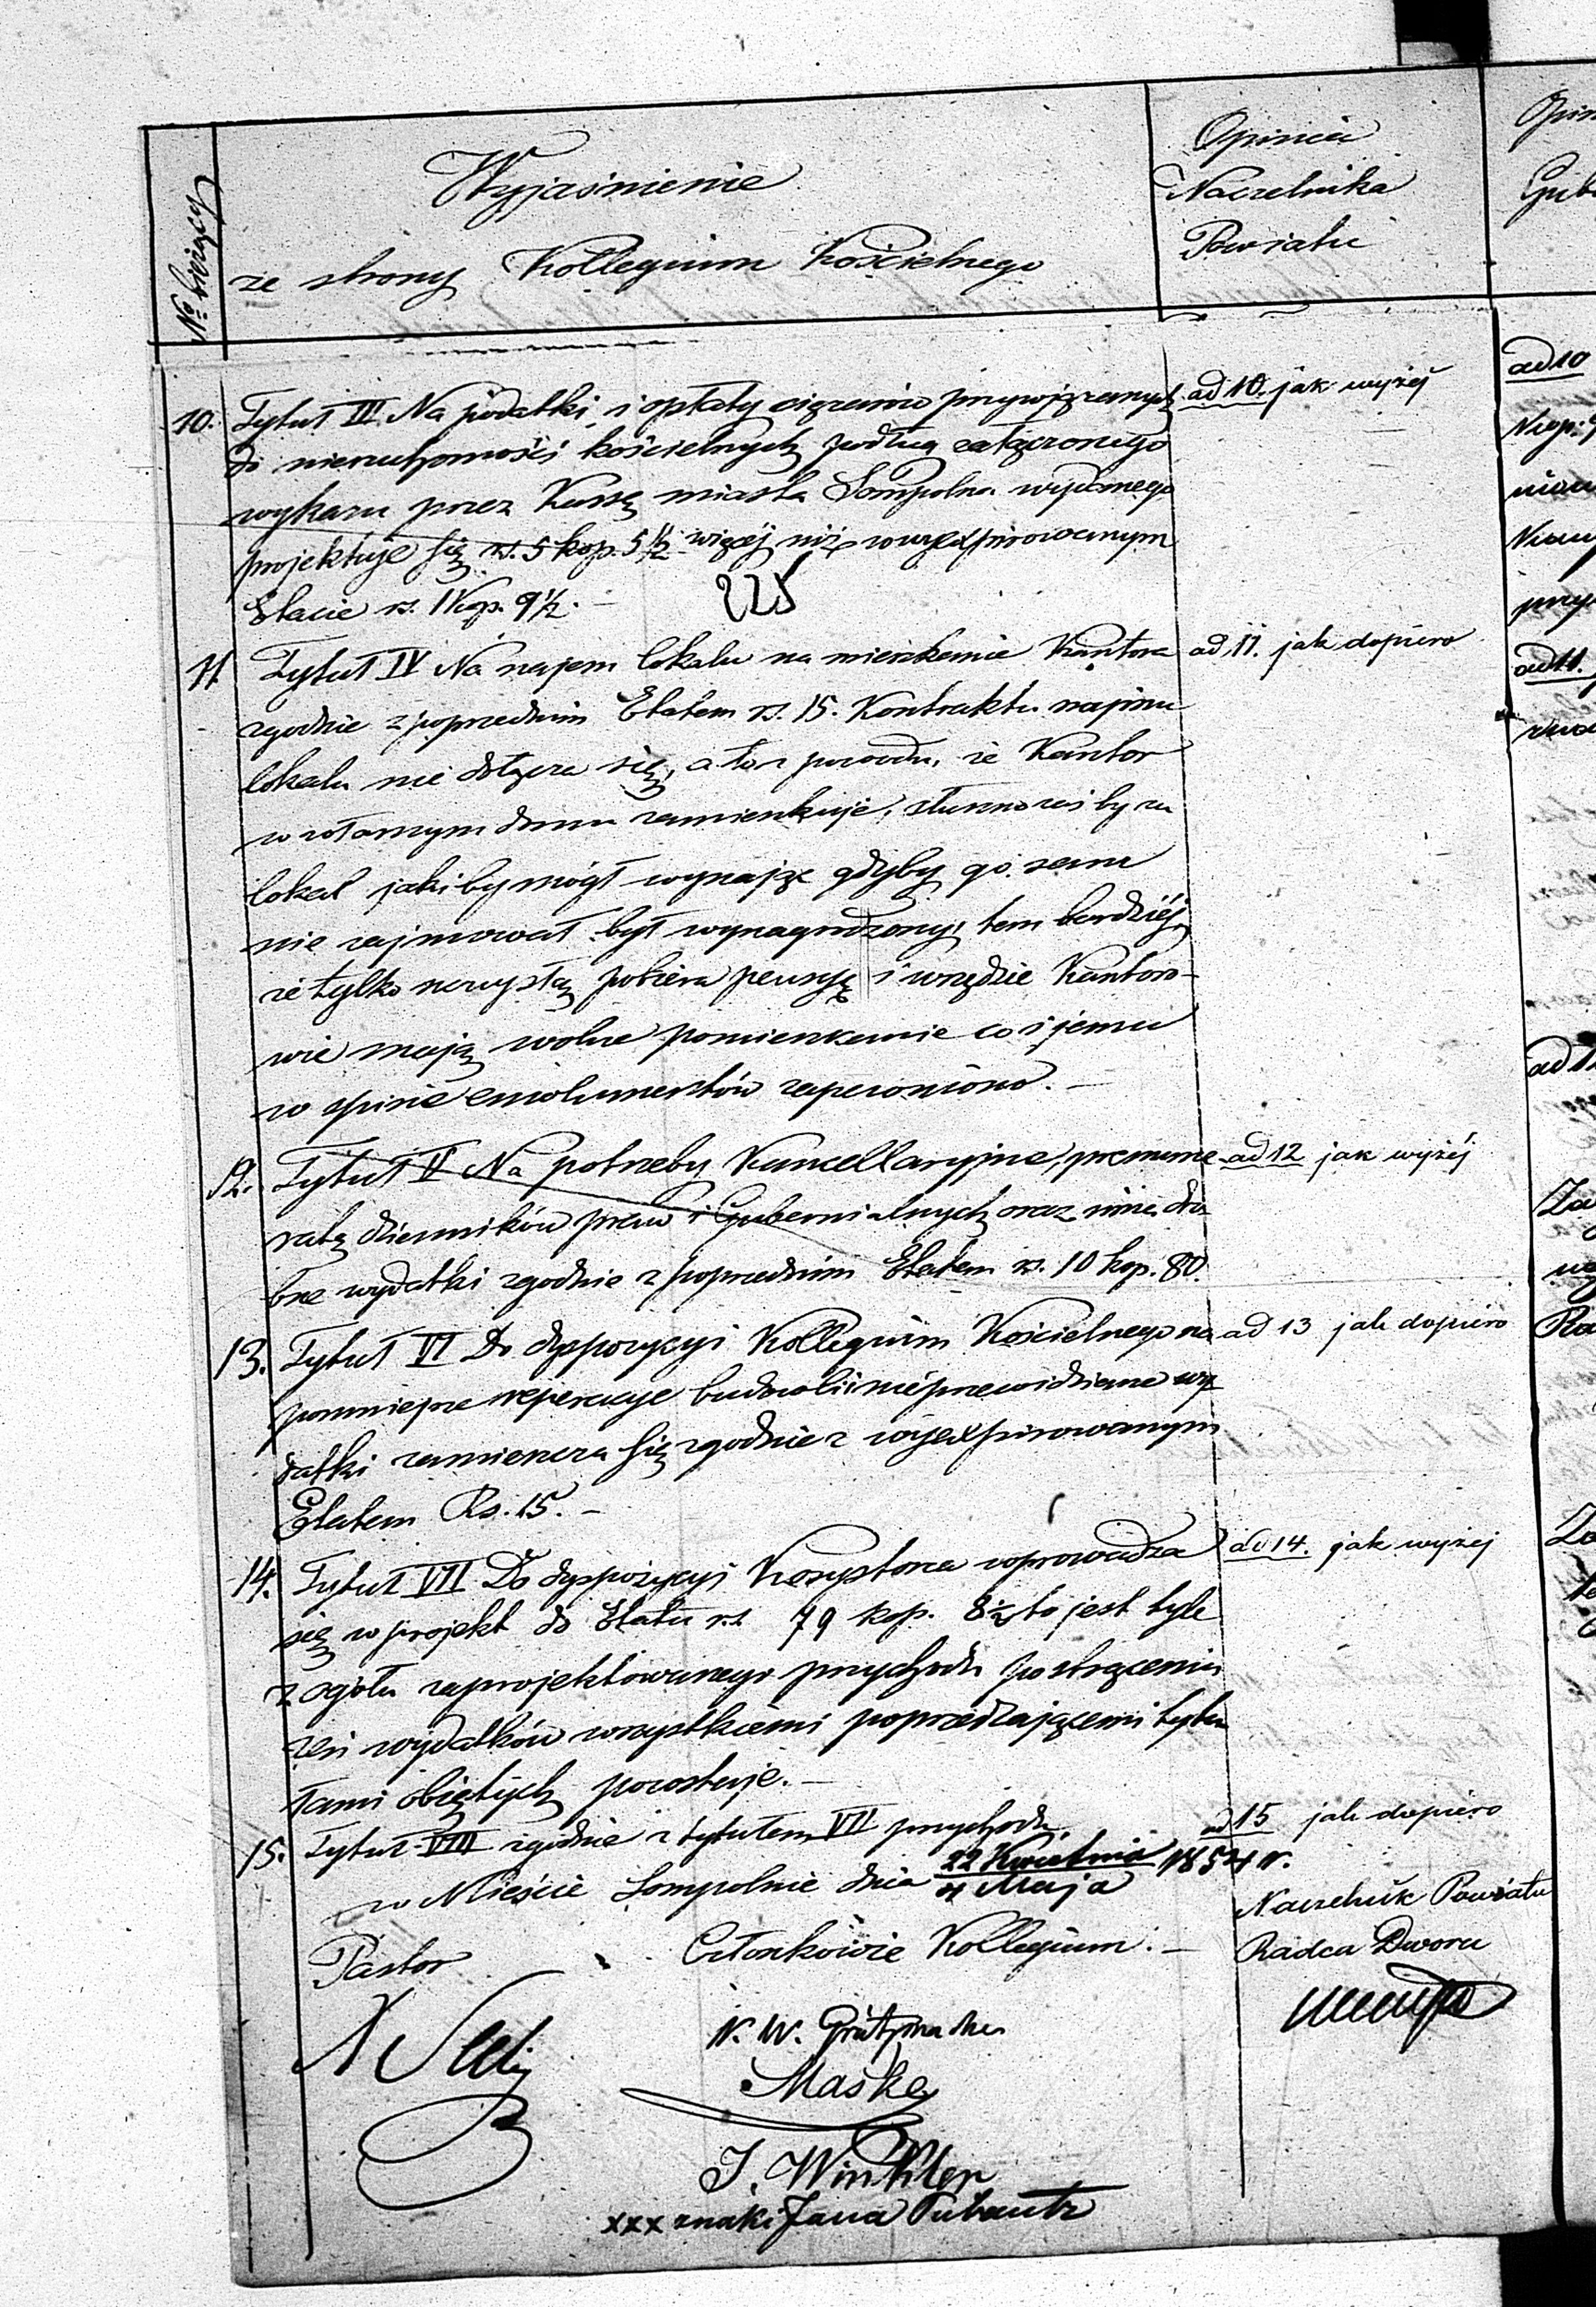 No bieżący
Wyjaśnienie
ze strony Kollegium Kościelnego
Opinia
Naczelnika
Powiatu
Opin
Gub
10. Tytuł III Na podatki i opłaty ciężarów przywiązanych
do nieruchomości kościelnych podług załączonego
wykazu przez Kassę miasta Sompolna wydanego
projektuje się rs. 5 kop. 5 1/2 więcej niż w wyexpirowanym
Etacie rs. 1 kop. 9 1/2. –
225
ad 10. jak wyżej
11. Tytuł IV Na najem lokalu na mieszkanie Kantora
zgodnie z poprzednim Etatem rs. 15. Kontraktu najmu
lokalu nie dołącza się, a to z powodu, że Kantor
w własnym domu zamieszkuje, słuszna zaś by za
lokal jakiby mógł wynająć gdyby go sam
nie zajmował był wynagrodzony, tem bardziéj,
że tylko pobiera pensyę i wszędzie Kantoro-
wie mają wolne pomieszkanie co i jemu
w spisie emolumentów zapewniono. –
ad 11. jak dopiero
12. Tytuł V Na potrzeby Kancellaryjne, prenume
ratę dzienników praw i Gubernialnych oraz inne dro
bne wydatki zgodnie z poprzednim Etatem rs. 10 kop. 80.
ad 12 jak wyżéj
13. Tytuł VI Do dyspozycyi Kollegium Kościelnego na
pomniejsze reperacye budowli i nieprzewidziane wy
datki zamieszcza się zgodnie z wyexpirowanym
Etatem Rs. 15. –
ad 13 jak dopiéro
14. Tytuł VII Do dyspozycyi Konsystorza wprowadza
się w projekt do Etatu rs. 79 kop. 8 1/2 to jest tyle
z ogółu zaprojektowanego przychodu po strąceniu
zeń wydatków wszystkiemi poprzedzającemi tytu
łami objętych pozostaje. –
ad 14. jak wyżej
15. Tytuł VIII zgodnie z tytułem VII przychodu.
ad 15 jak dopiéro
w Mieście Sompolnie dnia 22 Kwietnia / 4 Maja 1854 r.
Pastor
Członkowie Kollegium. –
Naczelnik Powiatu
Radca Dworu
Maske
J. Winkler
xxx znaki Jana
ad 10
ad 11.
ad 12